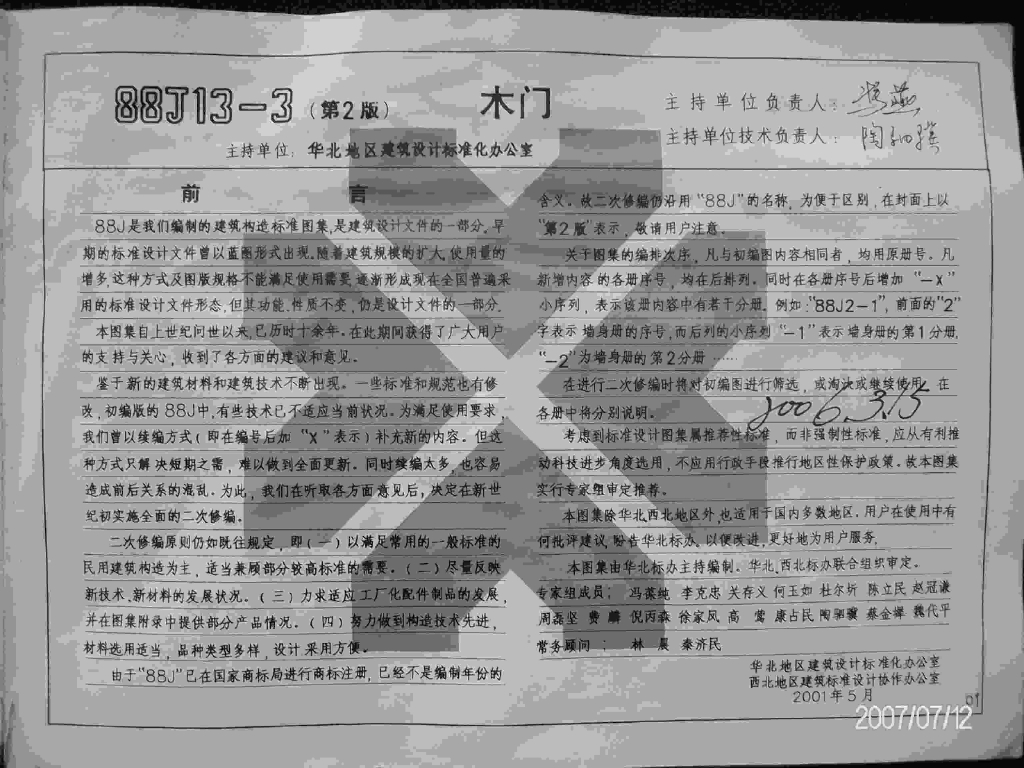 88J13-3 (第2版) 木门
主持单位: 华北地区建筑设计标准化办公室
主持单位负责人:
主持单位技术负责人:
前 言
88J是我们编制的建筑构造标准图集,是建筑设计文件的一部分,早
期的标准设计文件曾以蓝图形式出现,随着建筑规模的扩大,使用量的
增多,这种方式及图版规格不能满足使用需要,逐渐形成现在全国普遍采
用的标准设计文件形态,但其功能、性质不变,仍是设计文件的一部分。
本图集自上世纪问世以来,已历时十余年。在此期间获得了广大用户
的支持与关心,收到了各方面的建议和意见。
鉴于新的建筑材料和建筑技术不断出现。一些标准和规范也有修
改,初编版的88J中,有些技术已不适应当前状况。为满足使用要求,
我们曾以续编方式(即在编号后加“X”表示)补充新的内容。但这
种方式只解决短期之需,难以做到全面更新。同时续编太多,也容易
造成前后关系的混乱。为此,我们在听取各方面意见后,决定在新世
纪初实施全面的二次修编。
二次修编原则仍如既往规定,即(一)以满足常用的一般标准的
民用建筑构造为主,适当兼顾部分较高标准的需要。(二)尽量反映
新技术、新材料的发展状况。(三)力求适应工厂化配件制品的发展,
并在图集附录中提供部分产品情况。(四)努力做到构造技术先进,
材料选用适当,品种类型多样,设计采用方便。
由于“88J”已在国家商标局进行商标注册,已经不是编制年份的
含义。故二次修编仍沿用“88J”的名称,为便于区别,在封面上以
“第2版”表示,敬请用户注意。
关于图集的编排次序,凡与初编图内容相同者,均用原册号。凡
新增内容的各册序号,均在后排列。同时在各册序号后增加“—X”
小序列,表示该册内容中有若干分册,例如:“88J2-1”,前面的“2”
字表示墙身册的序号,而后列的小序列“-1”表示墙身册的第1分册,
“-2”为墙身册的第2分册……
在进行二次修编时将对初编图进行筛选,或淘汰或继续使用,在
各册中将分别说明。
2006.3.15
考虑到标准设计图集属推荐性标准,而非强制性标准,应从有利推
动科技进步角度选用,不应用行政手段推行地区性保护政策。故本图集
实行专家组审定推荐。
本图集除华北西北地区外,也适用于国内多数地区。用户在使用中有
何批评建议,盼告华北标办,以便改进,更好地为用户服务。
本图集由华北标办主持编制。华北、西北标办联合组织审定。
专家组成员: 冯葆纯 李克忠 关存义 何玉如 杜尔圻 陈立民 赵冠谦
周磊坚 费麟 倪丙森 徐家凤 高莺 康占民 陶驷骥 蔡金墀 魏代平
常务顾问: 林晨 秦济民
华北地区建筑设计标准化办公室
西北地区建筑标准设计协作办公室
2001年5月
01
2007/07/12